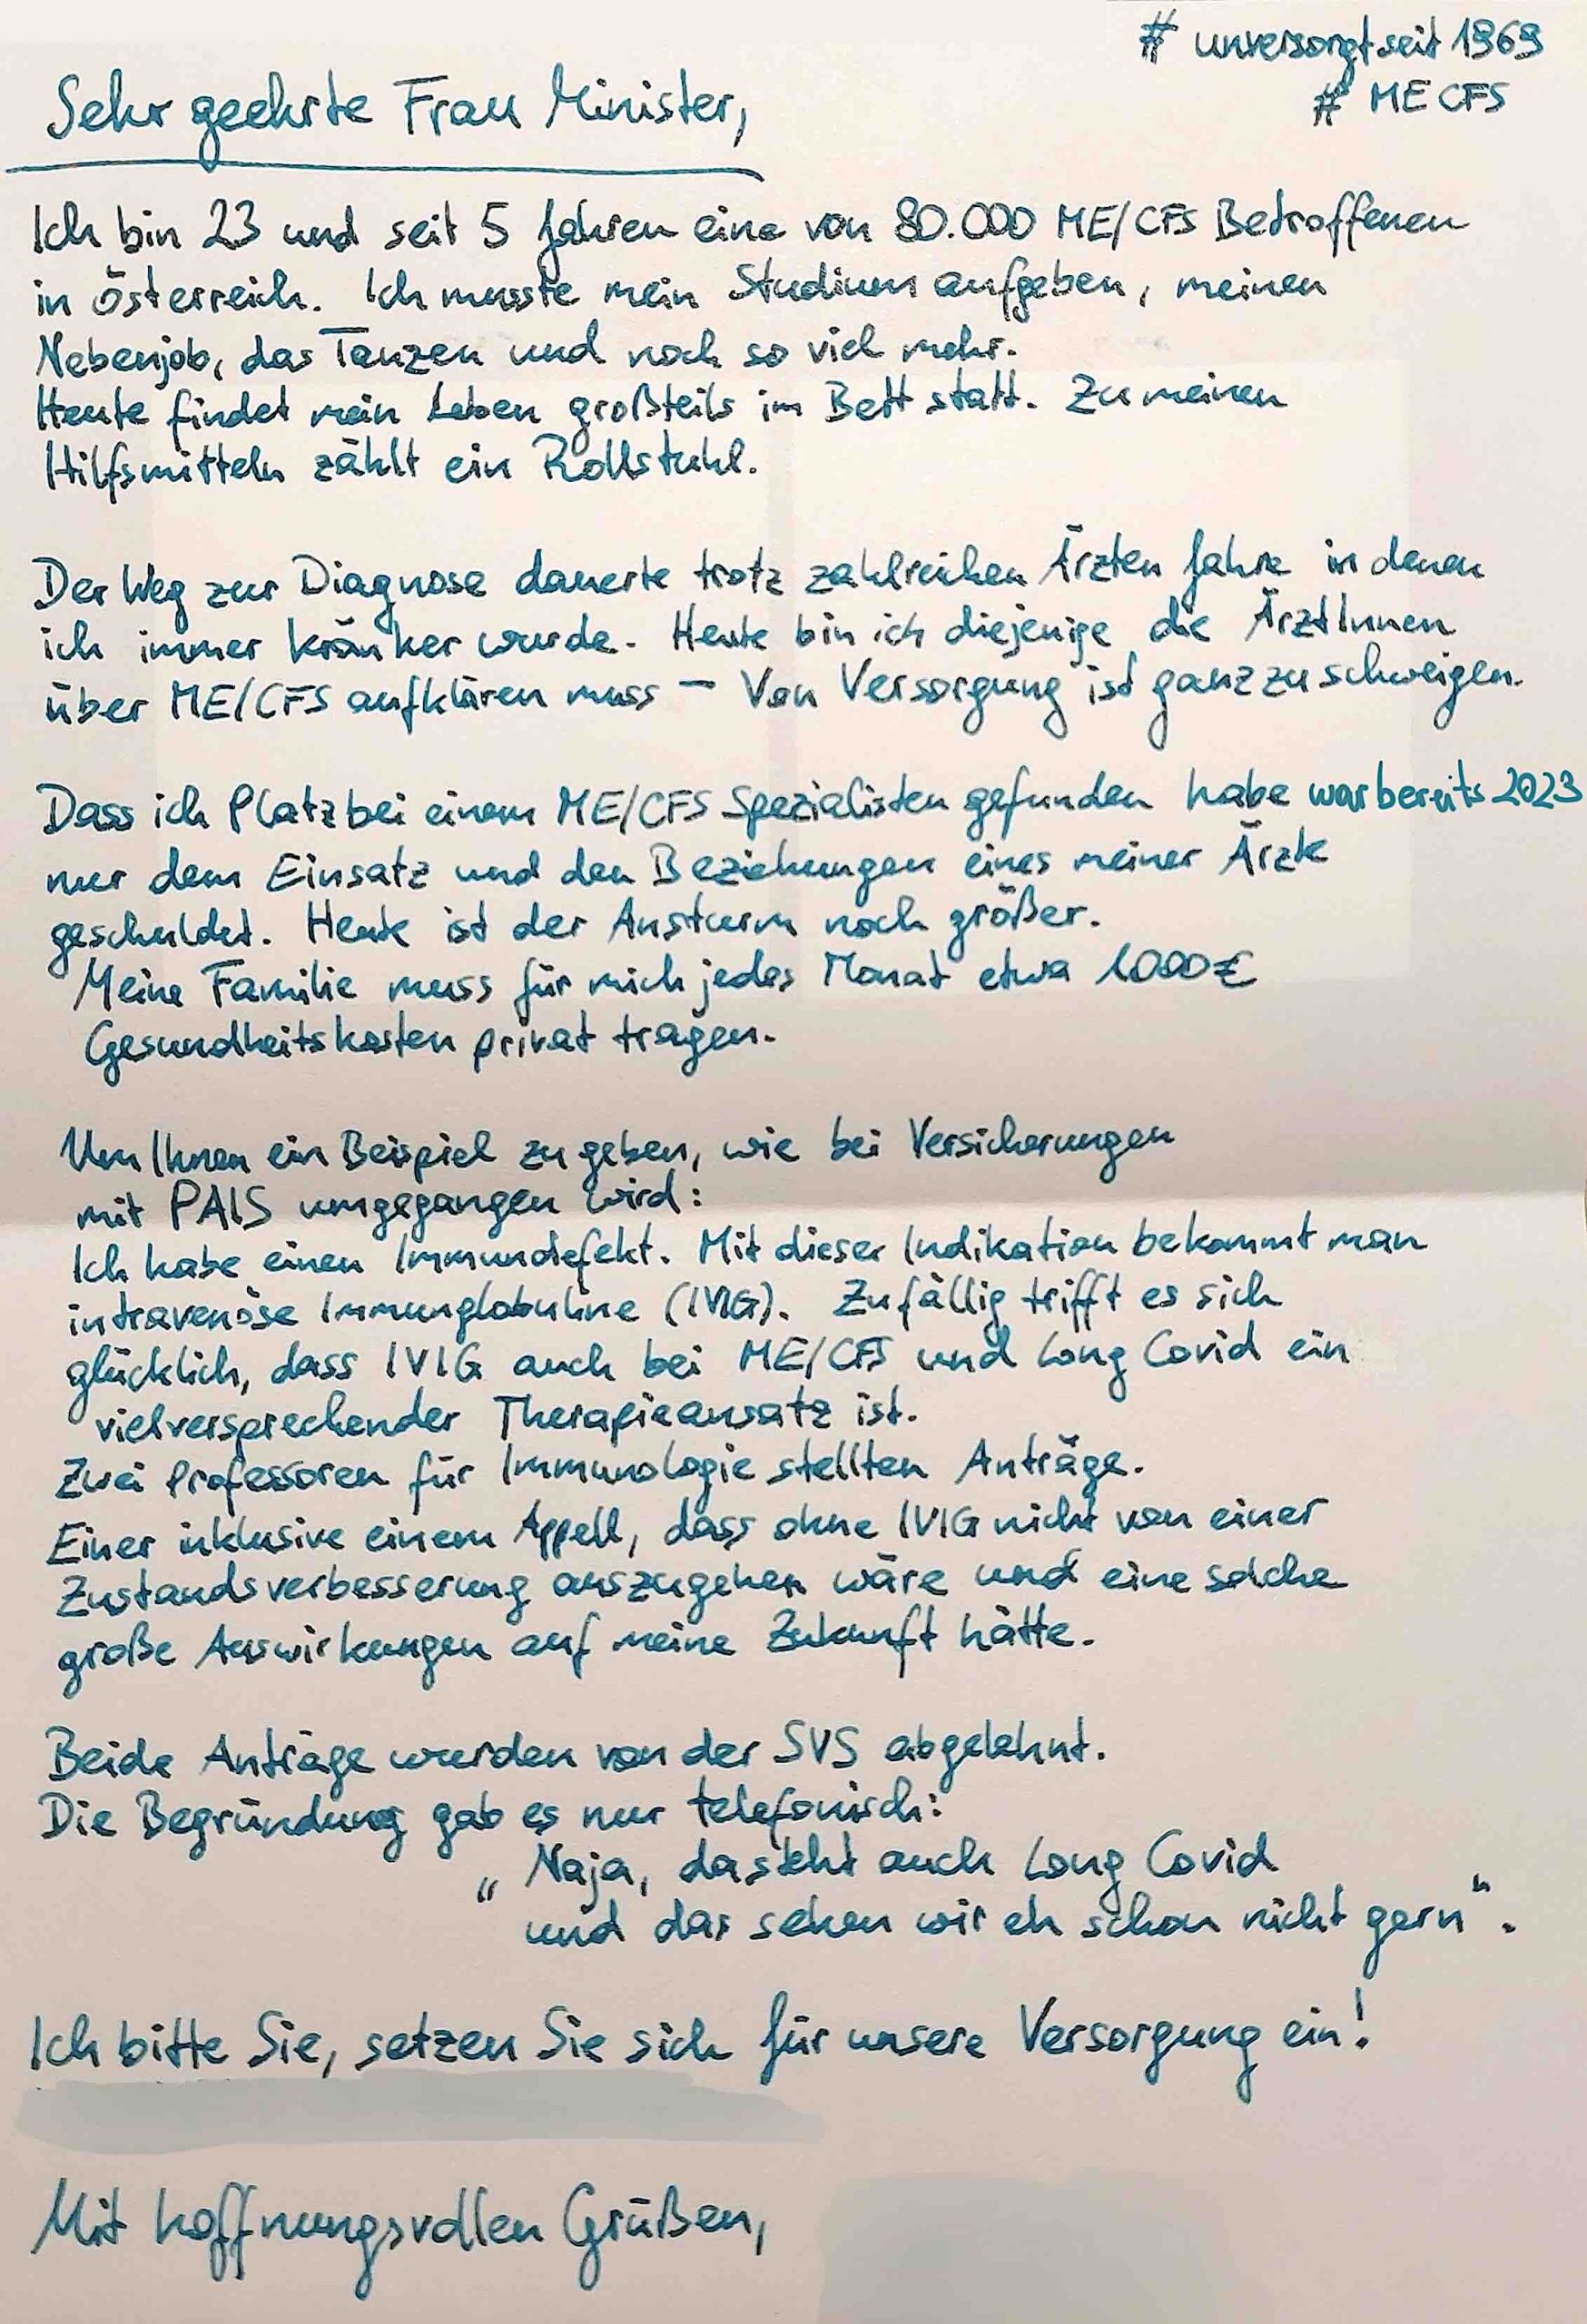 # unversorgtseit 1969
# ME CFS
Sehr geehrte Frau Minister,
Ich bin 23 und seit 5 Jahren eine von 80.000 ME/CFS Betroffenen
in Österreich. Ich musste mein Studium aufgeben, meinen
Nebenjob, das Tanzen und noch so viel mehr.
Heute findet mein Leben großteils im Bett statt. Zu meinen
Hilfsmitteln zählt ein Rollstuhl.
Der Weg zur Diagnose dauerte trotz zahlreichen Ärzten Jahre in denen
ich immer kränker wurde. Heute bin ich diejenige die ÄrztInnen
über ME/CFS aufklären muss – Von Versorgung ist ganz zu schweigen.
Dass ich Platz bei einem ME/CFS Spezialisten gefunden habe war bereits 2023
nur dem Einsatz und den Beziehungen eines meiner Ärzte
geschuldet. Heute ist der Ansturm noch größer.
Meine Familie muss für mich jedes Monat etwa 1000€
Gesundheitskosten privat tragen.
Um Ihnen ein Beispiel zu geben, wie bei Versicherungen
mit PAIS umgegangen wird:
Ich habe einen Immundefekt. Mit dieser Indikation bekommt man
intravenöse Immunglobuline (IVIG). Zufällig trifft es sich
glücklich, dass IVIG auch bei ME/CFS und Long Covid ein
vielversprechender Therapieansatz ist.
Zwei Professoren für Immunologie stellten Anträge.
Einer inklusive einem Appell, dass ohne IVIG nicht von einer
Zustandsverbesserung auszugehen wäre und eine solche
große Auswirkungen auf meine Zukunft hätte.
Beide Anträge wurden von der SVS abgelehnt.
Die Begründung gab es nur telefonisch:
„Naja, da steht auch Long Covid
und das sehen wir eh schon nicht gern".
Ich bitte Sie, setzen Sie sich für unsere Versorgung ein!
Mit hoffnungsvollen Grüßen,